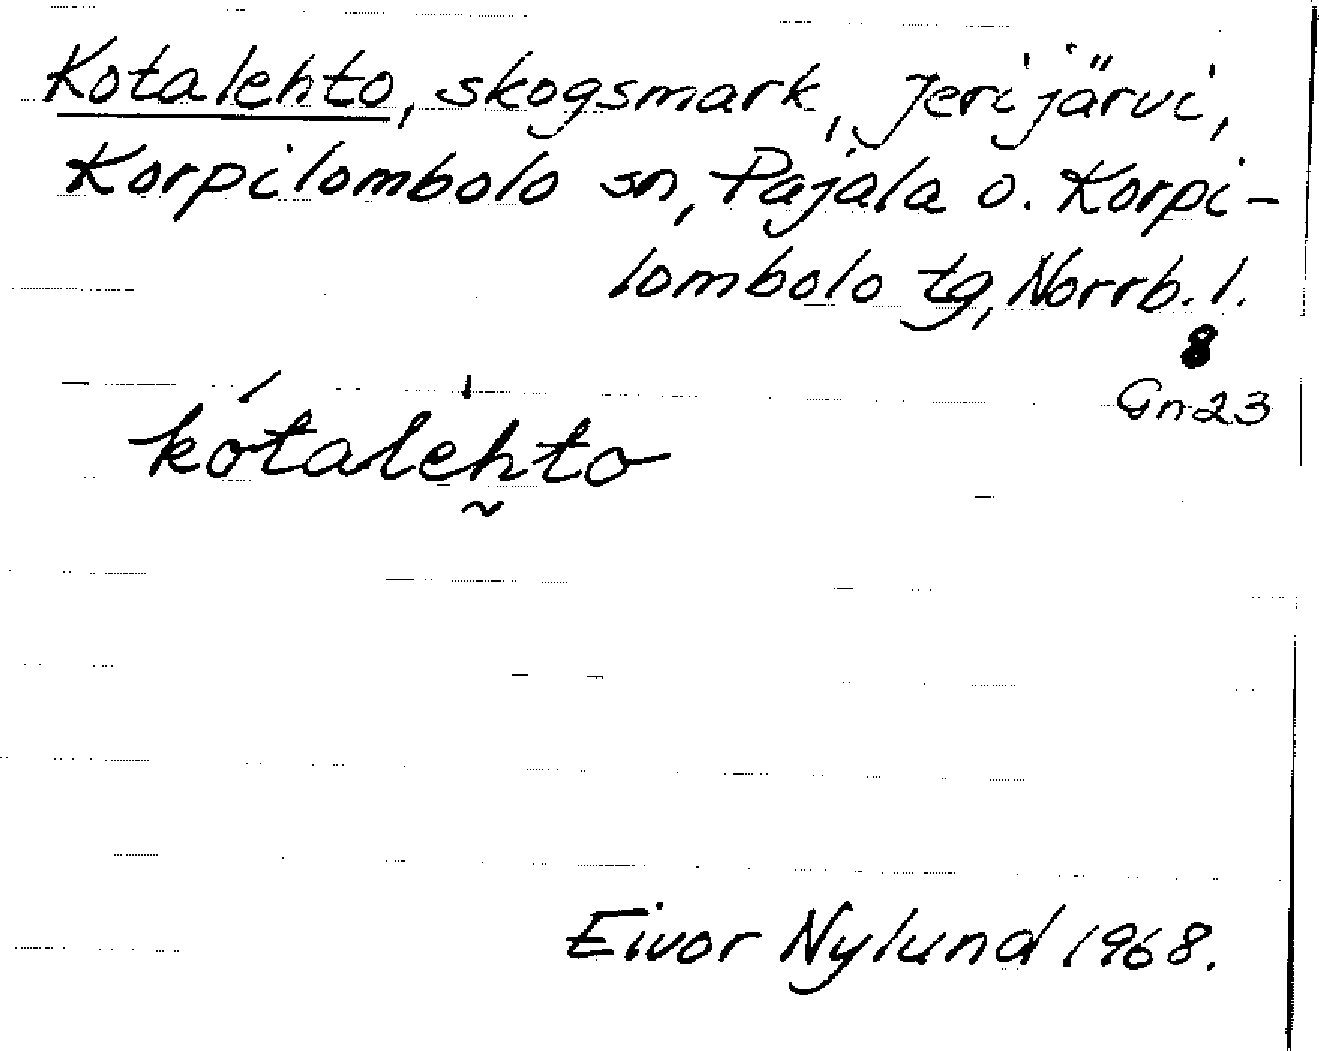 Kotalehto, skogsmark, Jerijärvi,
Korpilombolo sn, Pajala o. Korpi-
lombolo tg, Norrb. l.
8
Gn 23
kótalèhto
Eivor Nylund 1968.